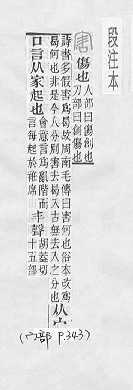 段注本
害 傷也 人部曰傷創也
刀部曰創傷也
詩書多假害爲曷故周南毛傳曰害何也俗本改爲
曷何也非是今人分別害去曷入古無去入之分也 从宀
口言从家起也 會意言爲亂階而 丯聲 胡葢切
言每起於衽席 十五部
(宀部 P.343)